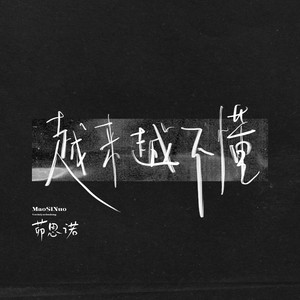 越来越不懂
MaoSINuo
茆思诺